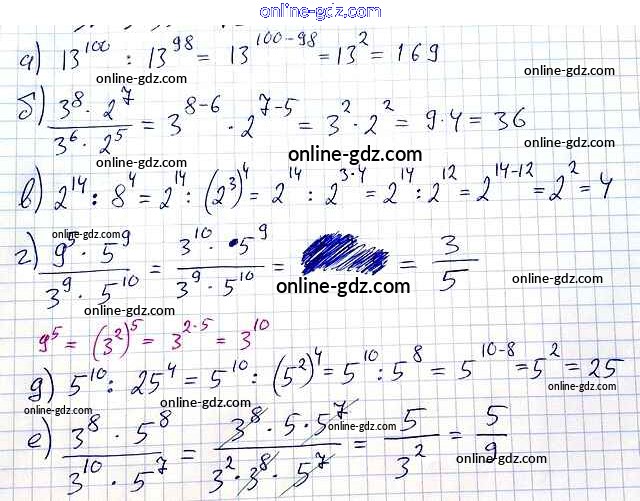 online-gdz.com
а) 13^100 : 13^98 = 13^(100-98) = 13^2 = 169
online-gdz.com online-gdz.com
б) (3^8 · 2^7)/(3^6 · 2^5) = 3^(8-6) · 2^(7-5) = 3^2 · 2^2 = 9·4 = 36
online-gdz.com online-gdz.com
в) 2^14 : 8^4 = 2^14 : (2^3)^4 = 2^14 : 2^(3·4) = 2^14 : 2^12 = 2^(14-12) = 2^2 = 4
online-gdz.com
г) (9^5 · 5^9)/(3^9 · 5^10) = (3^10 · 5^9)/(3^9 · 5^10) = = 3/5
online-gdz.com online-gdz.com online-gdz.com
9^5 = (3^2)^5 = 3^(2·5) = 3^10
online-gdz.com
д) 5^10 : 25^4 = 5^10 : (5^2)^4 = 5^10 : 5^8 = 5^(10-8) = 5^2 = 25
online-gdz.com online-gdz.com online-gdz.com
е) (3^8 · 5^8)/(3^10 · 5^7) = (3^8 · 5 · 5^7)/(3^2 · 3^8 · 5^7) = 5/3^2 = 5/9
online-gdz.com online-gdz.com